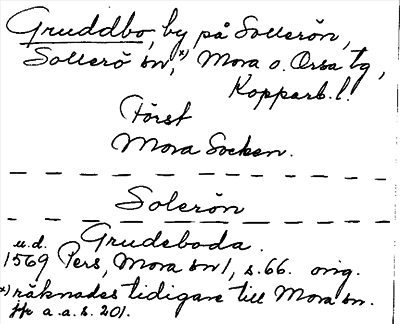 Gruddbo, by på Sollerön,
Sollerö sn,*) Mora o. Orsa tg,
Kopparb. l.
Först
Mora Socken.
Solerön
u.d. Grudeboda.
1569 Pers, Mora sn 1, s.66. orig.
*) räknades tidigare till Mora sn.
a.a.s. 201.